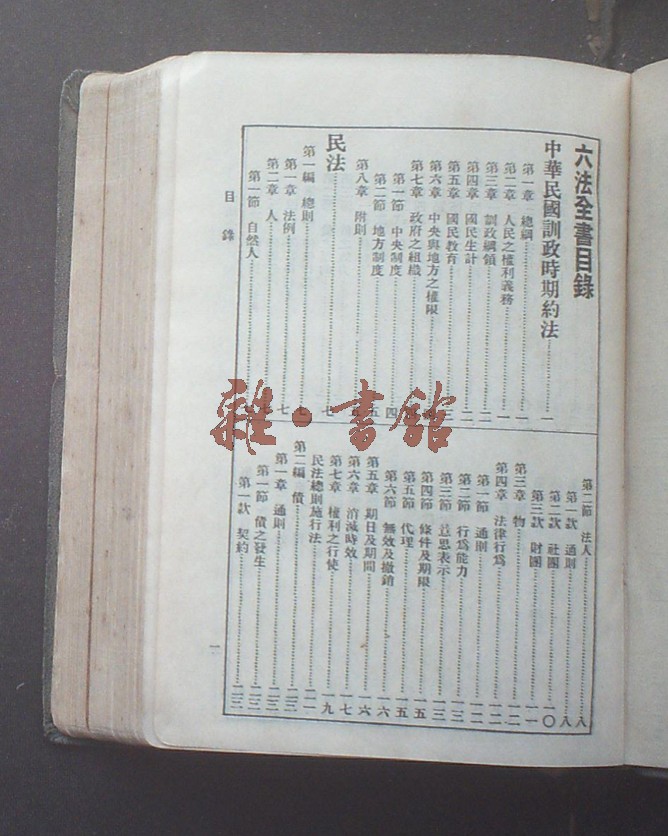 六法全書目錄
中華民國訓政時期約法 一
第一章 總綱 一
第二章 人民之權利義務 一
第三章 訓政綱領 二
第四章 國民生計 二
第五章 國民教育 三
第六章 中央與地方之權限
第七章 政府之組織
第一節 中央制度 四
第二節 地方制度 五
第八章 附則 五
民法 七
第一編 總則
第一章 法例 七
第二章 人
第一節 自然人
第二節 法人 八
第一款 通則 八
第二款 社團 一〇
第三款 財團 一一
第三章 物 一二
第四章 法律行爲 一二
第一節 通則 一二
第二節 行爲能力 一三
第三節 意思表示 一三
第四節 條件及期限 一五
第五節 代理 一五
第六節 無效及撤銷 一六
第五章 期日及期間 一六
第六章 消滅時效 一七
第七章 權利之行使 一九
民法總則施行法 二一
第二編 債 二三
第一章 通則 二三
第一節 債之發生 二三
第一款 契約 二三
目錄
一
雜·書館